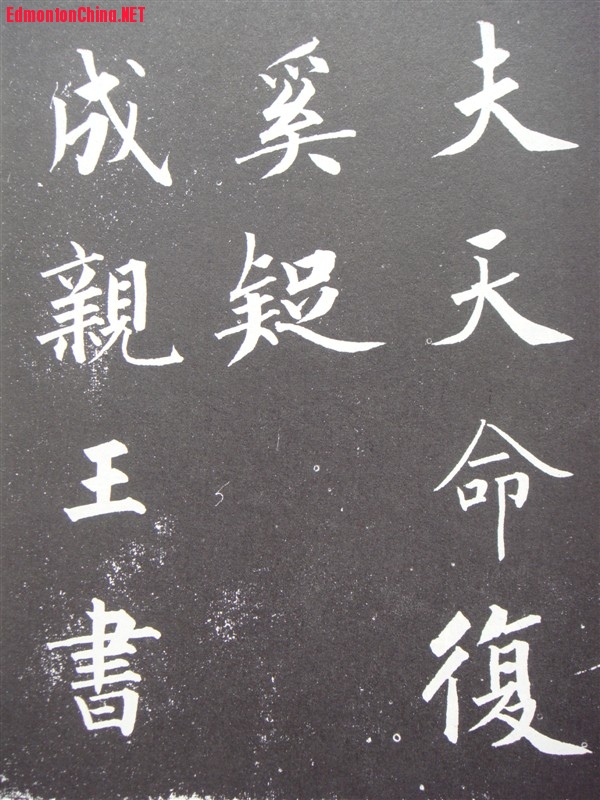 EdmontonChina.NET
夫天命復
奚疑
成親王書